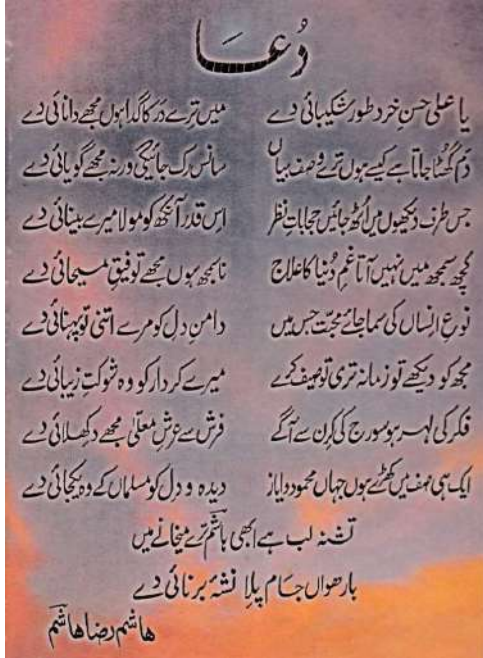 دُعا
یا علی حسنِ خرد طورِ شکیبائی دے میں ترے در کا گدا ہوں مجھے دانائی دے
دَم گھٹا جاتا ہے کیسے ہوں ترے وصف بیاں سانس رک جائیگی ورنہ مجھے گویائی دے
جس طرف دیکھوں میں اُٹھ جائیں حجاباتِ نظر اس قدر آنکھ کو مولا میرے بینائی دے
کچھ سمجھ میں نہیں آتا غمِ دُنیا کا علاج ناسمجھ ہوں مجھے توفیقِ مسیحائی دے
نوعِ انساں کی سما جائے محبّت جس میں دامنِ دل کو مرے اتنی تو پہنائی دے
مجھ کو دیکھے تو زمانہ تری توصیف کرے میرے کردار کو وہ شوکتِ زیبائی دے
فکر کی لہر ہو سورج کی کرن سے آگے فرش سے عرشِ معلّیٰ مجھے دکھلائی دے
ایک ہی صف میں کھڑے ہوں جہاں محمود و ایاز دیدہ و دل کو مسلماں کے وہ یکجائی دے
تشنہ لب ہے ابھی ہاشم ترے میخانے میں
بارھواں جام پلا نشۂ برنائی دے
ھاشم رضا ھاشم